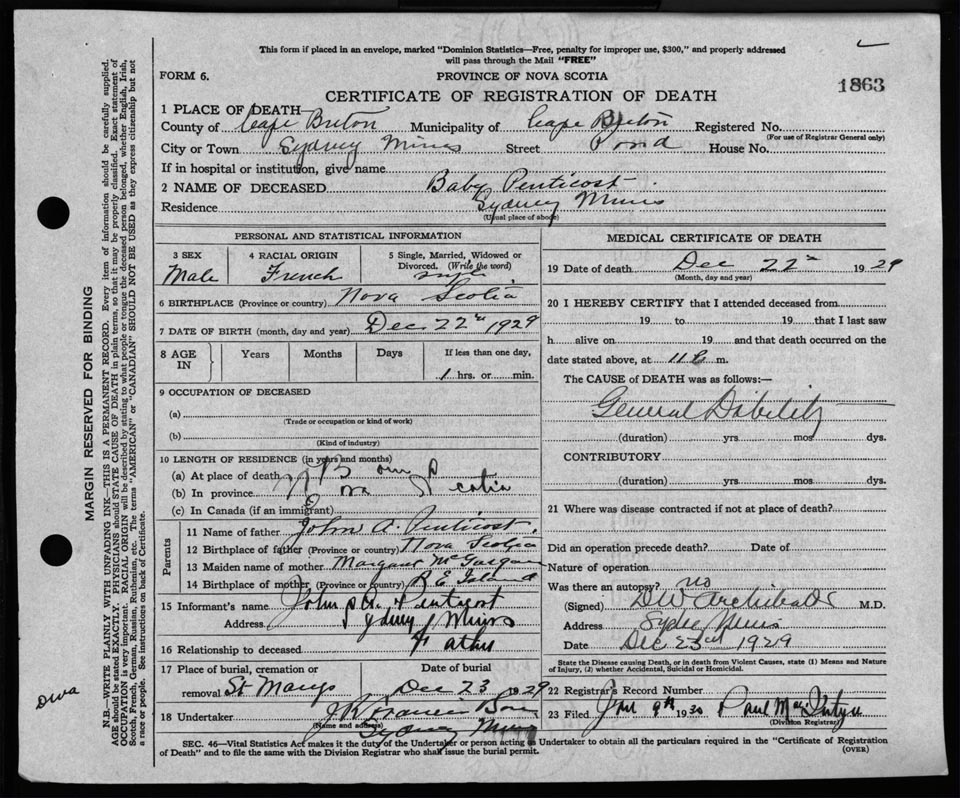 This form if placed in an envelope, marked "Dominion Statistics—Free, penalty for improper use, $300," and properly addressed
will pass through the Mail "FREE"
FORM 6.
PROVINCE OF NOVA SCOTIA
1863
CERTIFICATE OF REGISTRATION OF DEATH
1 PLACE OF DEATH—
County of Cape Breton Municipality of Cape Breton Registered No.
(For use of Registrar General only)
City or Town Sydney Mines Street Pond House No.
If in hospital or institution, give name
2 NAME OF DECEASED Baby Penticost
Residence Sydney Mines
(Usual place of abode)
PERSONAL AND STATISTICAL INFORMATION
3 SEX
Male
4 RACIAL ORIGIN
French
5 Single, Married, Widowed or
Divorced. (Write the word)
single
6 BIRTHPLACE (Province or country) Nova Scotia
7 DATE OF BIRTH (month, day and year) Dec 22nd 1929
8 AGE
IN
Years
Months
Days
If less than one day,
1 hrs. or min.
9 OCCUPATION OF DECEASED
(a)
(Trade or occupation or kind of work)
(b)
(Kind of industry)
10 LENGTH OF RESIDENCE (in years and months)
(a) At place of death
(b) In province Nova Scotia
(c) In Canada (if an immigrant)
Parents
11 Name of father John A. Penticost.
12 Birthplace of father (Province or country) Nova Scotia
13 Maiden name of mother Margaret
14 Birthplace of mother (Province or country) P E Island
15 Informant's name John A. Penticost
Address Sydney Mines
16 Relationship to deceased Father
17 Place of burial, cremation or
removal St Marys
Date of burial
Dec 23 1929
18 Undertaker J.K
(Name and address)
Sydney Mines
MEDICAL CERTIFICATE OF DEATH
19 Date of death Dec 22nd 1929
(Month, day and year)
20 I HEREBY CERTIFY that I attended deceased from
19 to 19 that I last saw
h alive on 19 and that death occurred on the
date stated above, at 11 m.
The CAUSE of DEATH was as follows:—
General Debility
(duration) yrs. mos dys.
CONTRIBUTORY
(duration) yrs. mos. dys.
21 Where was disease contracted if not at place of death?
Did an operation precede death? Date of
Nature of operation
Was there an autopsy? no
(Signed) DW Archibald M.D.
Address Sydney Mines
Date Dec 23rd 1929
State the Disease causing Death, or in death from Violent Causes, state (1) Means and Nature
of Injury, (2) whether Accidental, Suicidal or Homicidal.
22 Registrar's Record Number
23 Filed Jan 9th 1930 Paul
(Division Registrar)
SEC. 46—Vital Statistics Act makes it the duty of the Undertaker or person acting as Undertaker to obtain all the particulars required in the "Certificate of Registration
of Death" and to file the same with the Division Registrar who shall issue the burial permit.
(OVER)
MARGIN RESERVED FOR BINDING
N.B.—WRITE PLAINLY WITH UNFADING INK—THIS IS A PERMANENT RECORD. Every item of information should be carefully supplied.
AGE should be stated EXACTLY. PHYSICIANS should STATE CAUSE OF DEATH in plain terms, so that it may be properly classified. Exact statement of
OCCUPATION is very important. RACIAL ORIGIN will be described by stating to what people or tongue the deceased person belonged, whether English, Irish,
Scotch, French, German, Russian, Ruthenian, etc. The terms "AMERICAN" or "CANADIAN" SHOULD NOT BE USED as they express citizenship but not
a race or people. See instructions on back of Certificate.